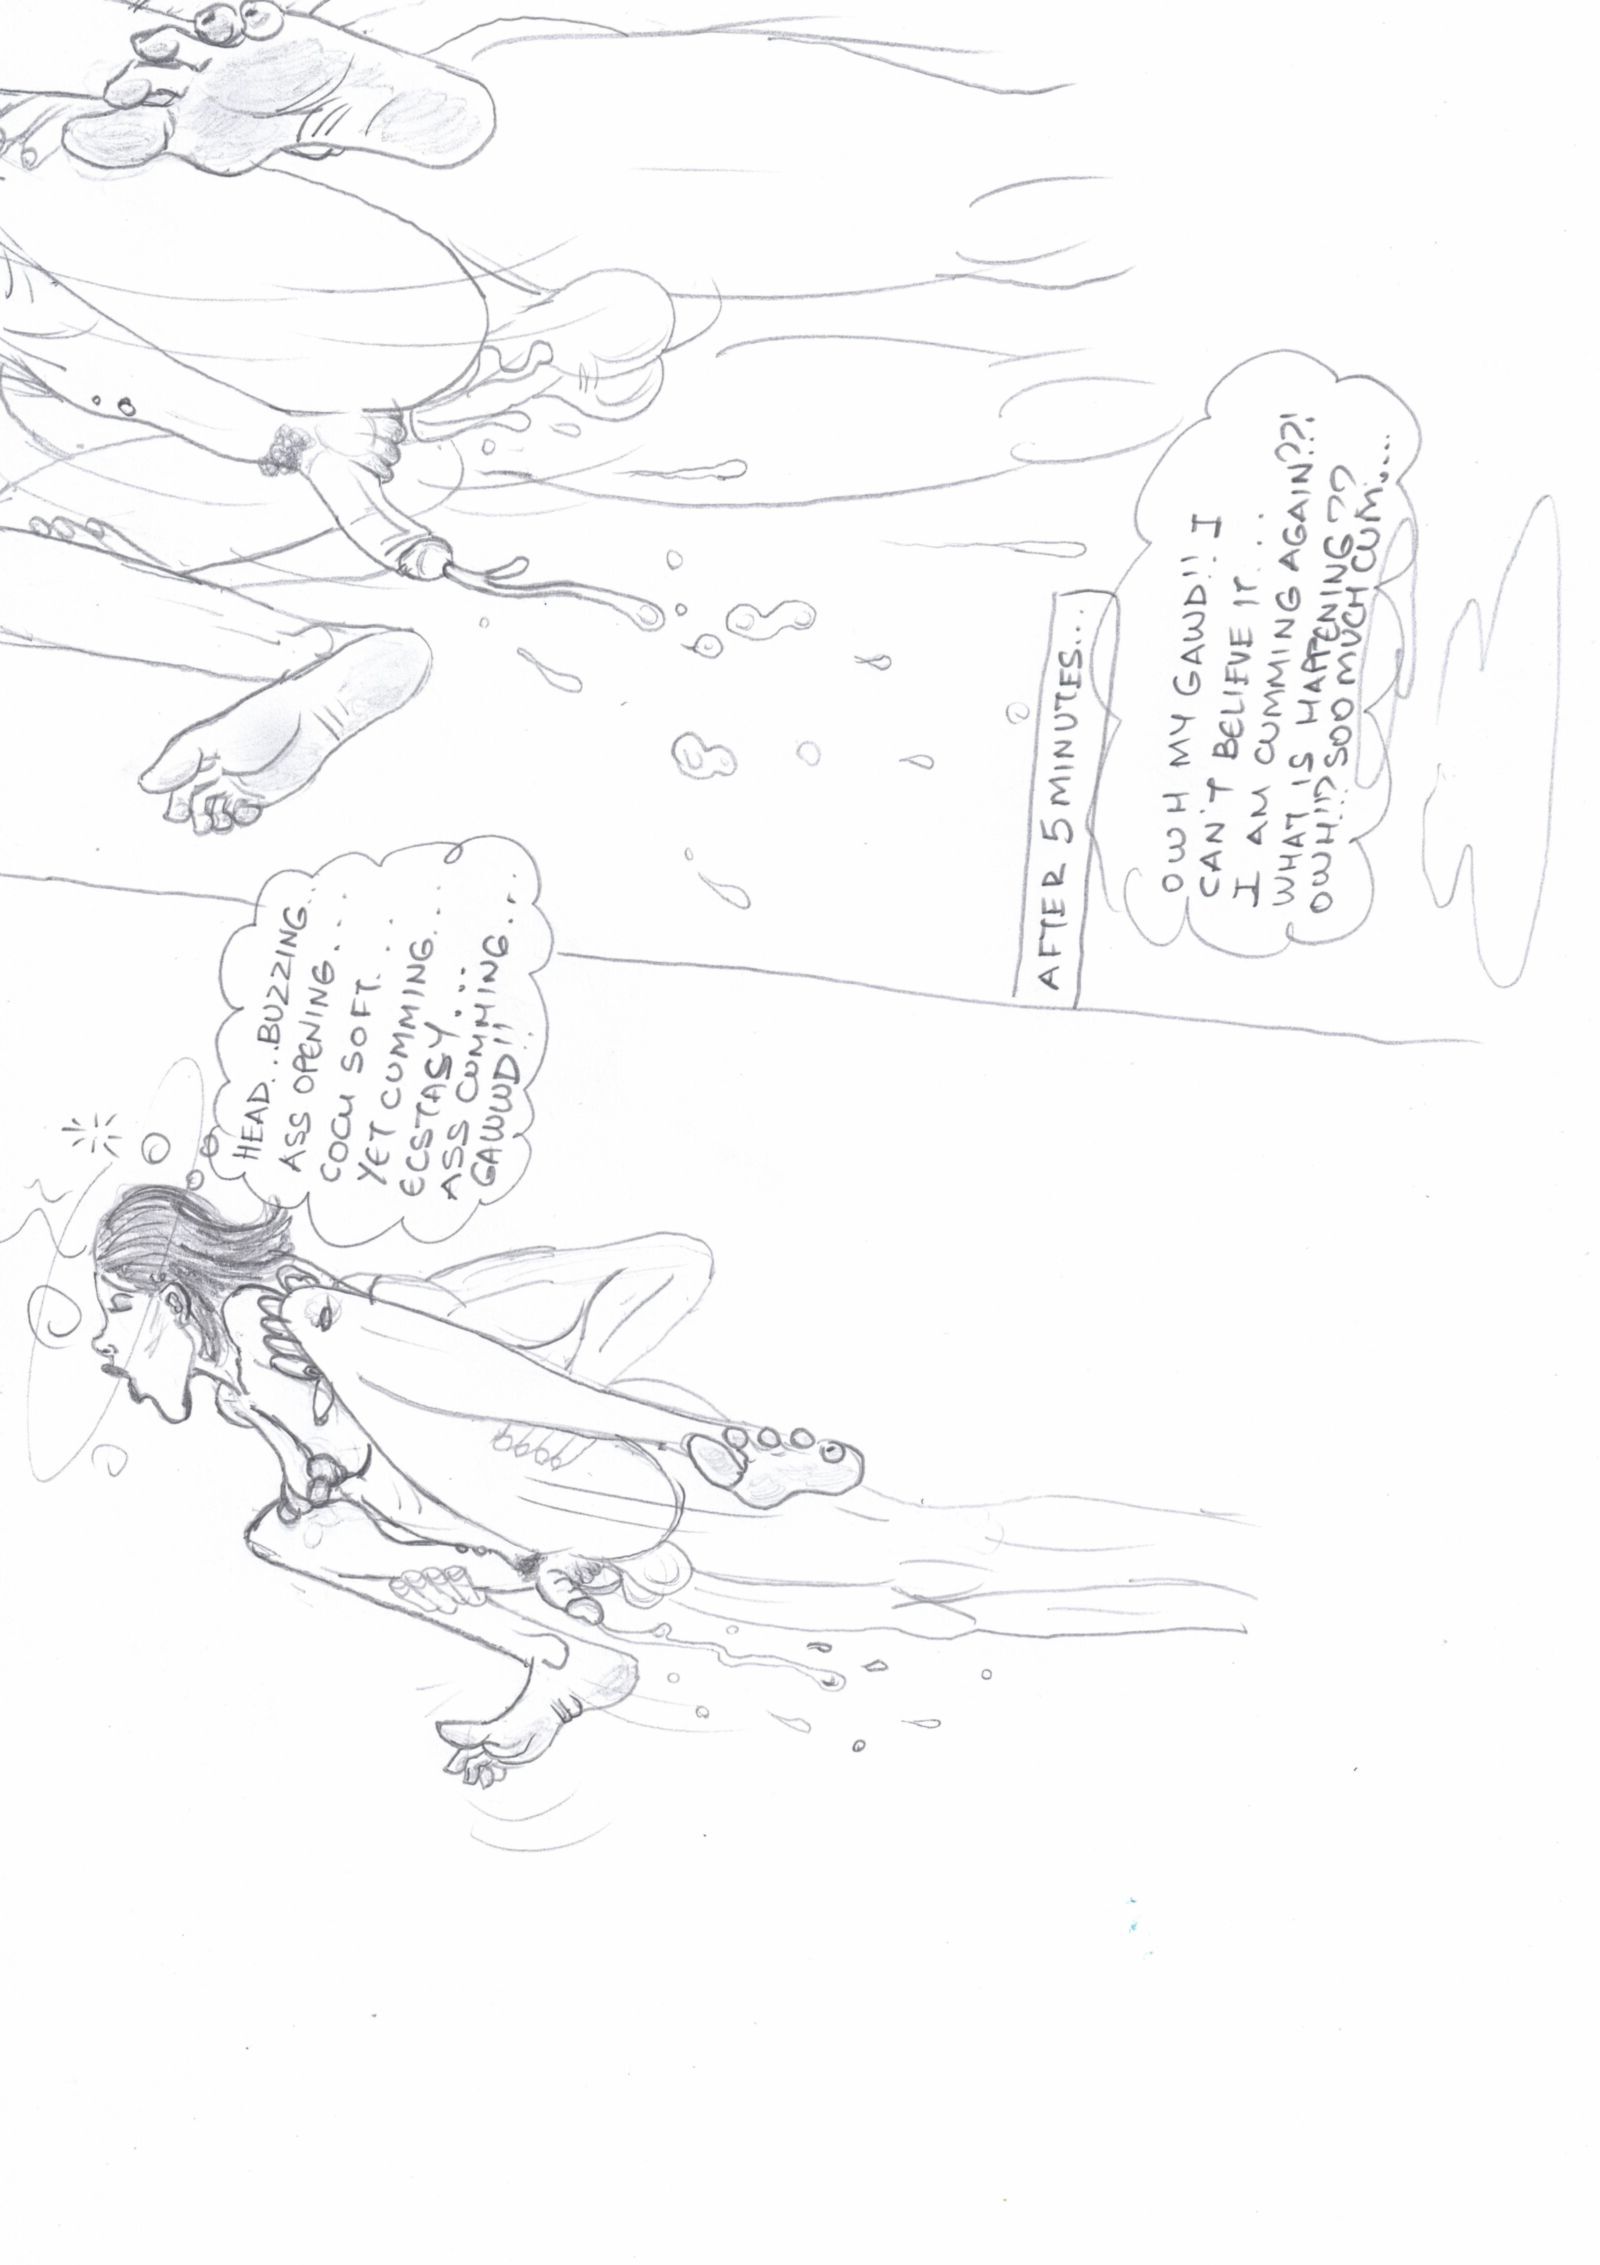 HEAD...BUZZING...
ASS OPENING....
COCU SOFT....
YET CUMMING...
ECSTASY....
ASS CUMMING...
GAWWD!!!
AFTER 5 MINUTES...
OWH MY GAWD!! I
CAN'T BELIEVE IT....
I AM CUMMING AGAIN??!
WHAT IS HAPPENING??
OWH!!! SOO MUCH CUM....